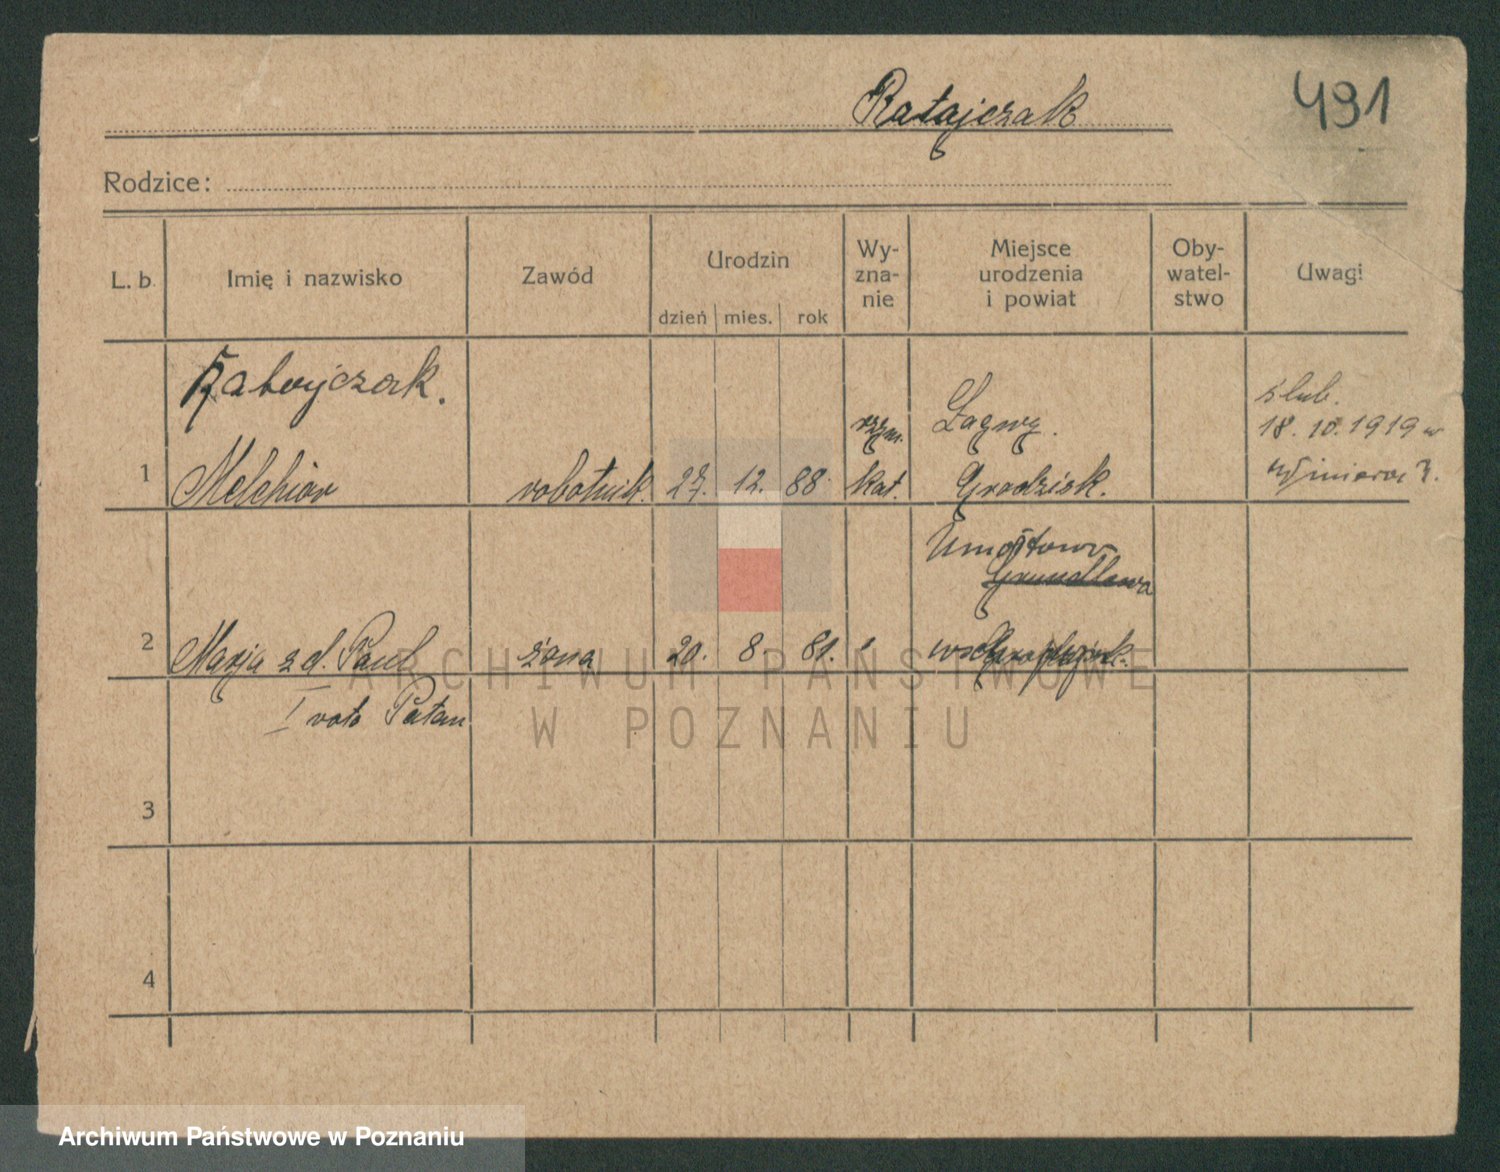 Ratajczak
491
Rodzice:
L. b.
Imię i nazwisko
Zawód
Urodzin
dzień mies. rok
Wy-
zna-
nie
Miejsce
urodzenia
i powiat
Oby-
watel-
stwo
Uwagi
Ratajczak.
1 Melchior robotnik. 27. 12. 88. rzym. kat. Łagwy. Grodzisk.
ślub.
18. 10. 1919 w
2 Marja z d. Paul żona 20. 8. 81.
I voto Patan
3
4
ARCHIWUM PAŃSTWOWE
W POZNANIU
Archiwum Państwowe w Poznaniu